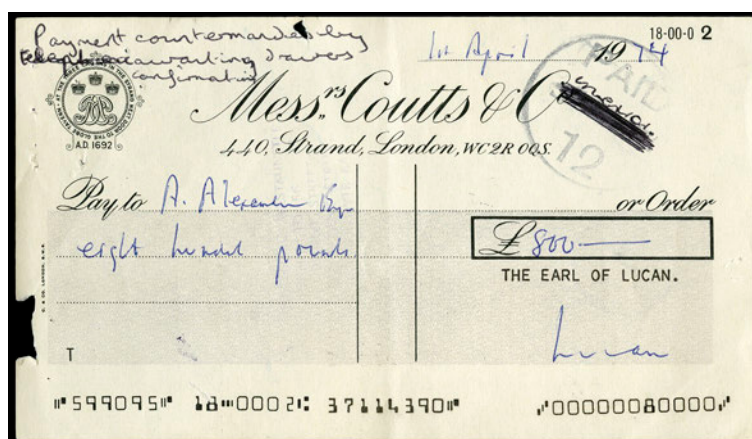 Payment countermanded by
telephone awaiting drawers
confirmation
18-00-0 2
1st April 1974
PAID
12
A.D. 1692
Messrs. Coutts & Co
440, Strand, London, WC2R 0QS.
Pay to A. Alexander Esq or Order
eight hundred pounds
£ 800—
THE EARL OF LUCAN.
Lucan
T
⑈599095⑈ 18⑉0002⑆ 37114390⑈ ⑇0000080000⑇